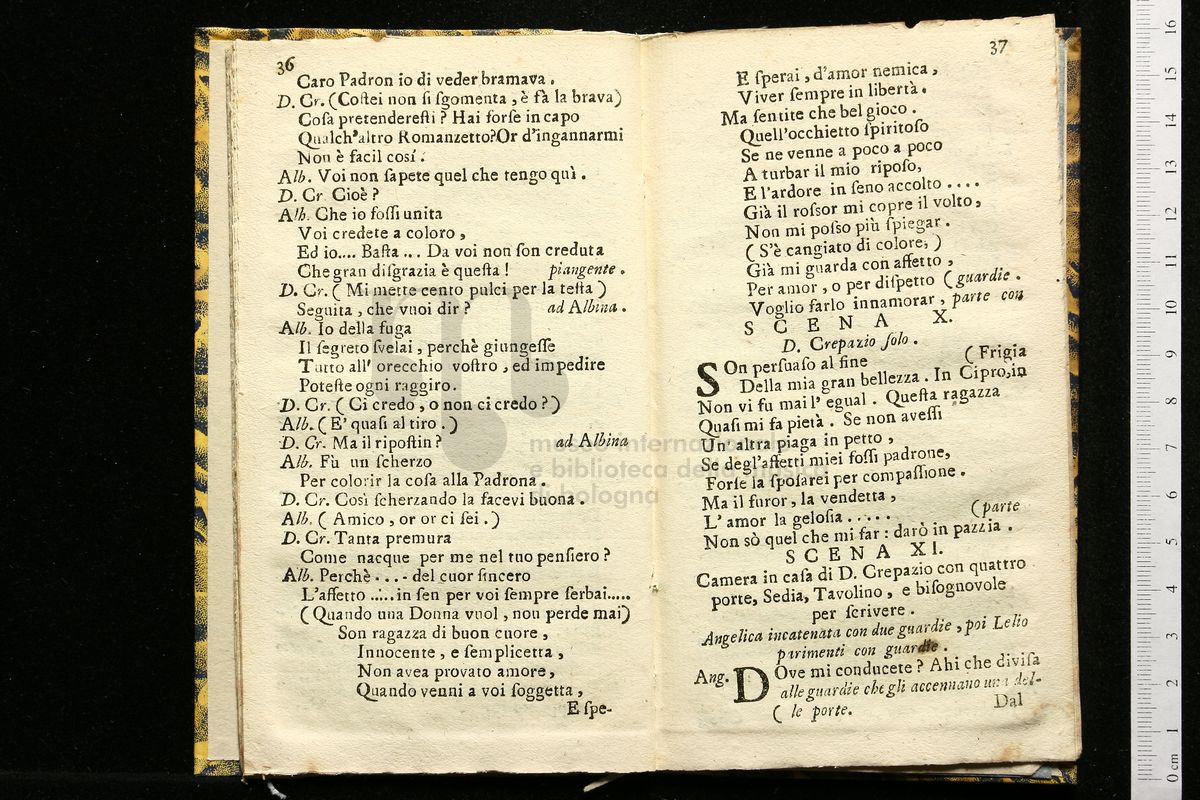 36
Caro Padron io di veder bramava.
D. Cr. (Coſtei non ſi ſgomenta, è fà la brava)
Coſa pretendereſti? Hai forſe in capo
Qualch'altro Romanzetto? Or d'ingannarmi
Non è facil così.
Alb. Voi non ſapete quel che tengo quì.
D. Cr Cioè?
Alb. Che io foſſi unita
Voi credete a coloro,
Ed io.... Baſta ... Da voi non ſon creduta
Che gran diſgrazia è queſta! piangente.
D. Cr. (Mi mette cento pulci per la teſta)
Seguita, che vuoi dir? ad Albina.
Alb. Io della fuga
Il ſegreto ſvelai, perchè giungeſſe
Tutto all' orecchio voſtro, ed impedire
Poteſte ogni raggiro.
D. Cr. (Ci credo, o non ci credo?)
Alb. (E' quaſi al tiro.)
D. Cr. Ma il ripoſtin? ad Albina
Alb. Fù un ſcherzo
Per colorir la coſa alla Padrona.
D. Cr. Così ſcherzando la facevi buona.
Alb. (Amico, or or ci ſei.)
D. Cr. Tanta premura
Come nacque per me nel tuo penſiero?
Alb. Perchè .... del cuor ſincero
L'affetto ..... in ſen per voi ſempre ſerbai.....
(Quando una Donna vuol, non perde mai)
Son ragazza di buon cuore,
Innocente, e ſemplicetta,
Non avea provato amore,
Quando venni a voi ſoggetta,
E ſpe-
37
E ſperai, d'amor nemica,
Viver ſempre in libertà.
Ma ſentite che bel gioco.
Quell'occhietto ſpiritoſo
Se ne venne a poco a poco
A turbar il mio ripoſo,
E l'ardore in ſeno accolto ....
Già il roſſor mi copre il volto,
Non mi poſſo più ſpiegar.
(S'è cangiato di colore,)
Già mi guarda con affetto,
Per amor, o per diſpetto (guardie.
Voglio farlo innamorar, parte con
SCENA X.
D. Crepazio ſolo.
SOn perſuaſo al fine (Frigia
Della mia gran bellezza. In Cipro, in
Non vi fu mai l' egual. Queſta ragazza
Quaſi mi fa pietà. Se non aveſſi
Un' altra piaga in petto,
Se degl'affetti miei foſſi padrone,
Forſe la ſpoſarei per compaſſione.
Ma il furor, la vendetta,
L' amor la geloſia ..... (parte
Non sò quel che mi far: darò in pazzia.
SCENA XI.
Camera in caſa di D. Crepazio con quattro
porte, Sedia, Tavolino, e biſognovole
per ſcrivere.
Angelica incatenata con due guardie, poi Lelio
parimenti con guardie.
Ang. DOve mi conducete? Ahi che diviſa
alle guardie che gli accennano una del-
(le porte.
Dal
museo internazionale
e biblioteca della musica
di bologna
0 cm 1 2 3 4 5 6 7 8 9 10 11 12 13 14 15 16